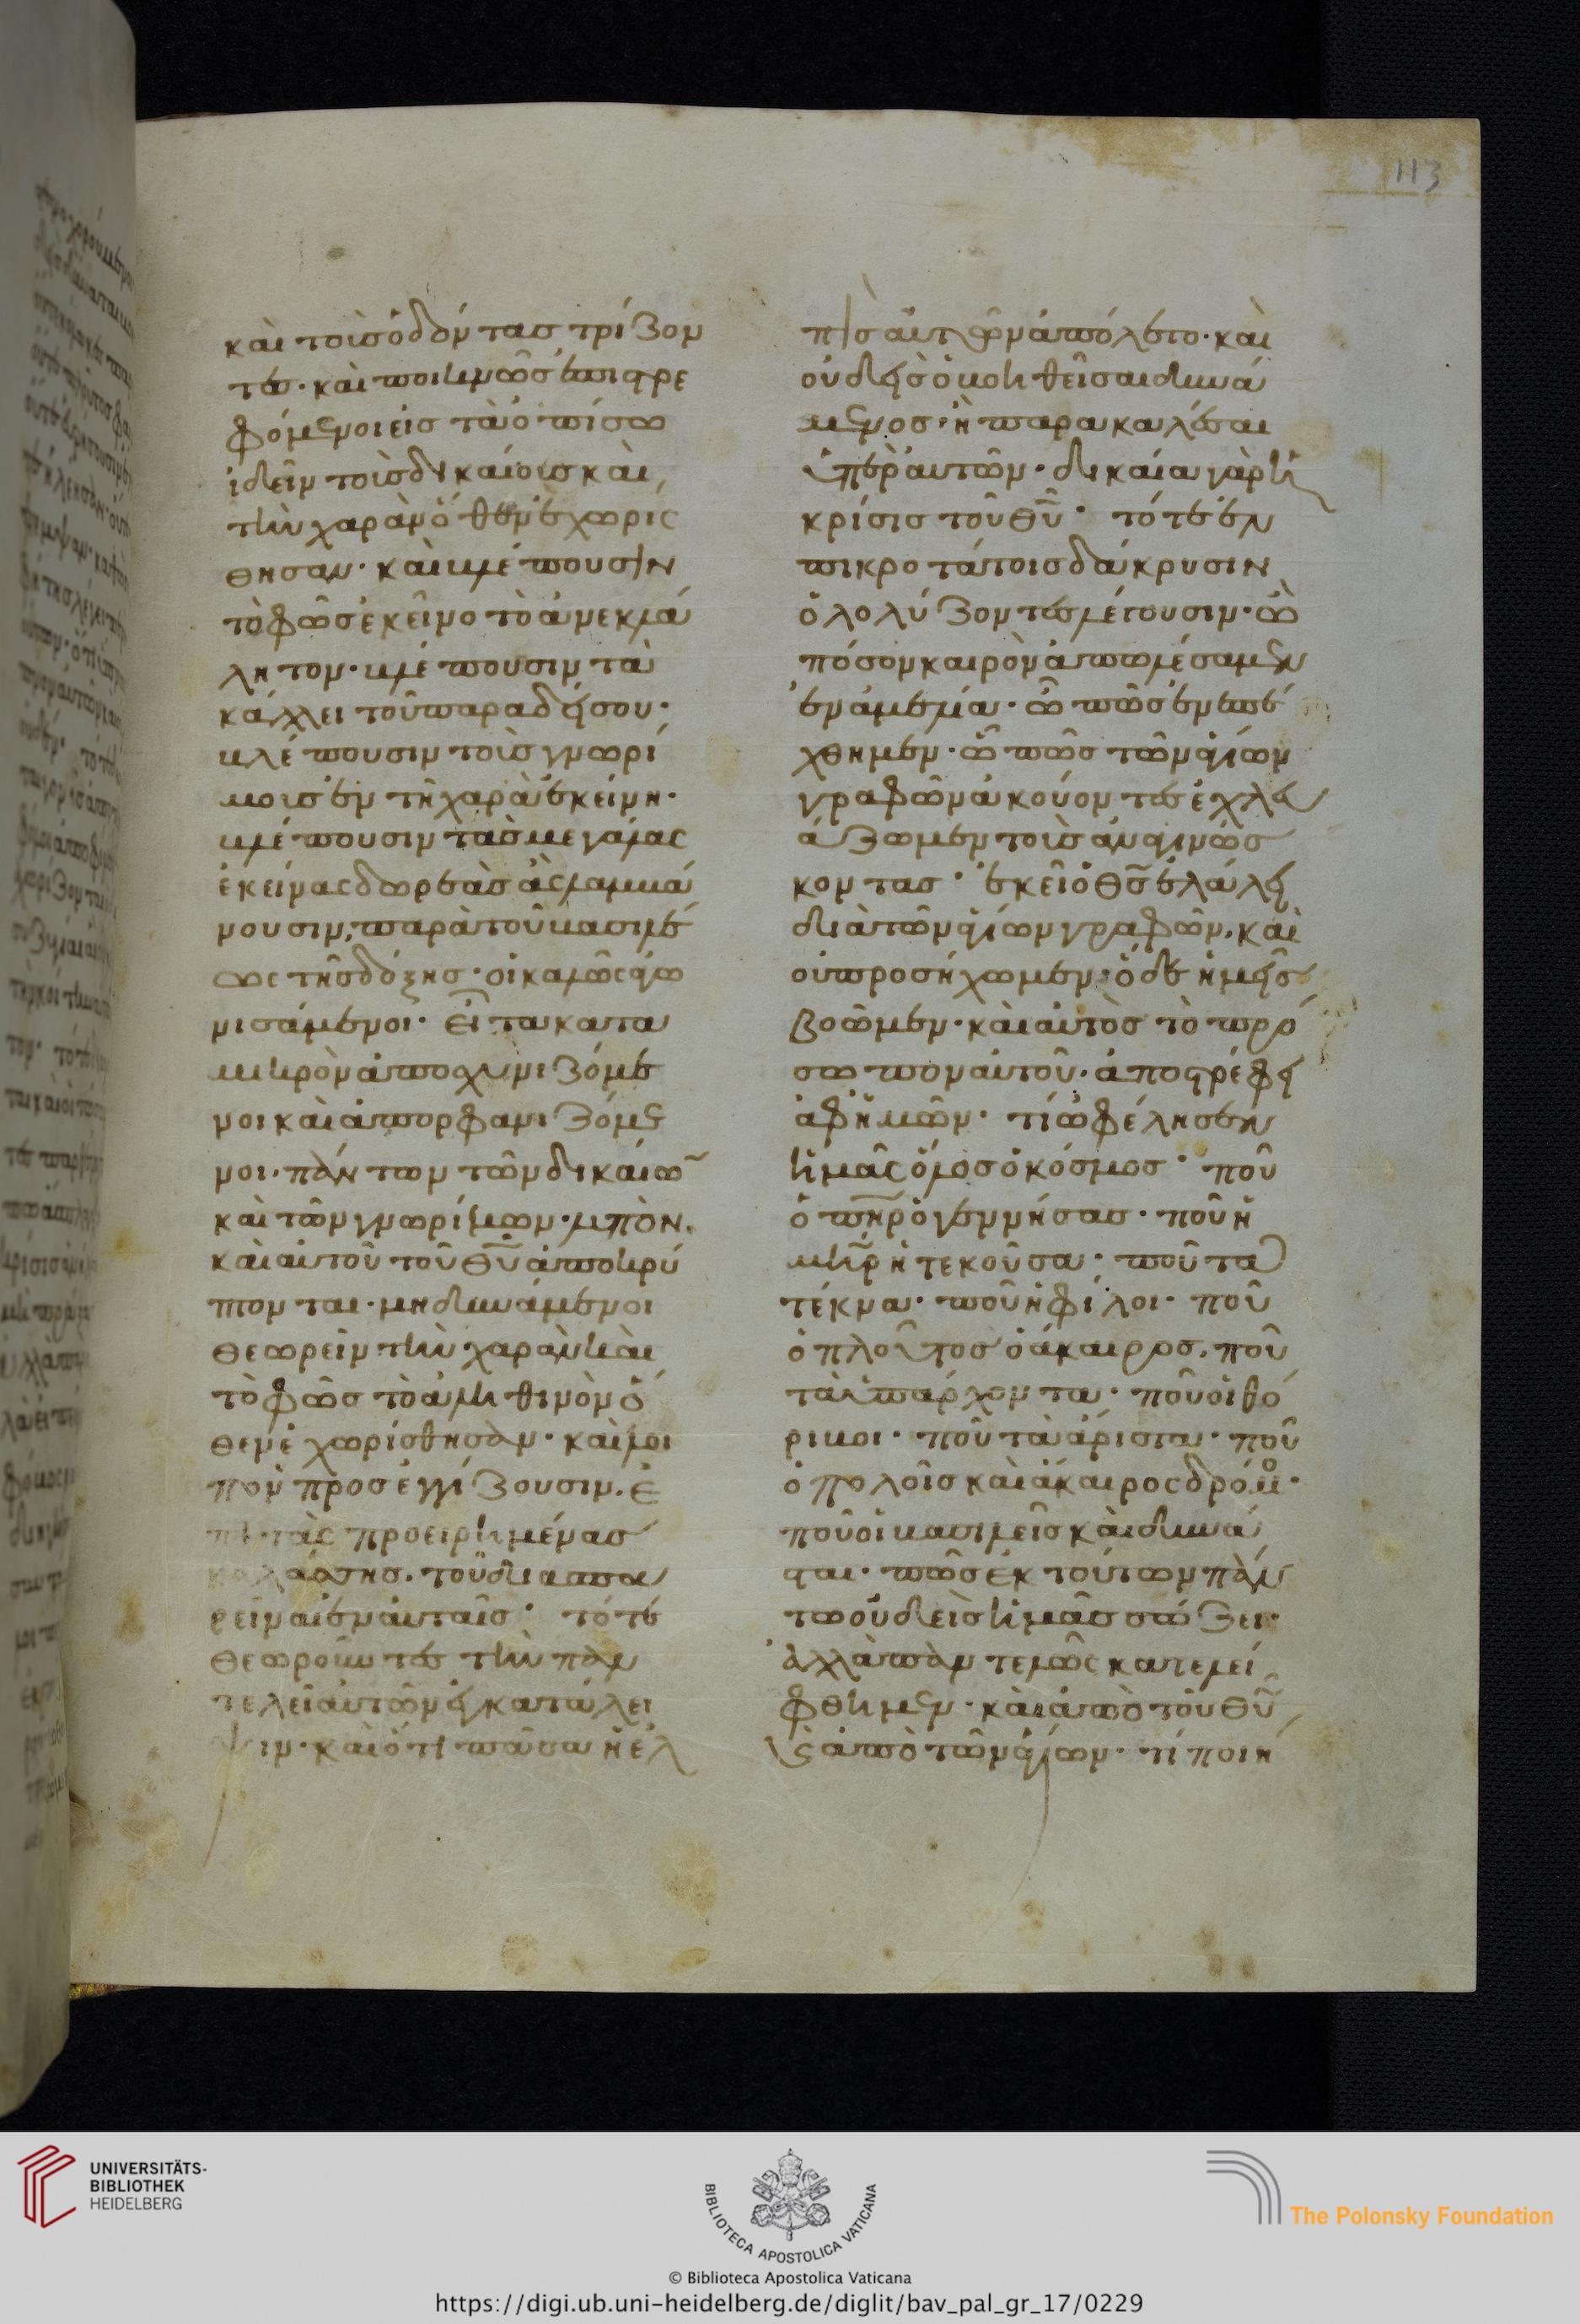 113
και τοὺσ ὀδόντασ τρίζον
τεσ· και ποιηνῶσ ἐπιστρε
φόμενοι εἰσ τὰ ὀπίσω
ἰδεῖν τοὺσ δικαίουσ και
τὴν χαρὰν ὅθεν ἐχωρίσ
θησαν· και βλέπουσιν
τὸ φῶσ ἐκεῖνο τὸ ἀνεκλά
λητον· βλέπουσιν τὰ
κάλλει τοῦ παραδείσου·
βλέπουσιν τοὺσ γνωρί
μουσ ἐν τῆ χαρὰ ἐκείνη·
βλέπουσιν τὰσ μεγάλας
ἐκείνας δωρεὰσ ἃς λαμβά
νουσιν, παρὰ τοῦ βασιλέ
ως τῆσ δόξησ· οἱ καλῶς ἀγω
νισάμενοι· Εἶτα κατα
μικρὸν ἀποχυνιζόμε
νοι και ἀπορφανιζόμε
νοι· πάντων τῶν δικαίω
και τῶν γνωρίμων· λιπὸν.
και αὐτοῦ τοῦ θῦ ἀποκρύ
πτονται· μὴ δυνάμενοι
θεωρεῖν τὴν χαρὰν και
τὸ φῶσ τὸ ἀληθινὸν ὅ
θεν ἐχωρίσθησαν· και λοι
πὸν προσεγγίζουσιν. ἐ
πι τὰς προειρημένασ
κολάσησ. τοῦ διασπα
ρεῖναι ἐν αὐταῖσ· τότε
θεωροῦντεσ τὴν παν
τελεῖ αὐτῶν ἐγκατάλει
ψιν· και ὅτι πᾶσα ἡ ἐλ
πὶσ αὐτῶν ἀπόλετο· και
οὐδεὶσ ὁ βοηθεῖσαι δυνά
μενοσ· ἢ παρακαλέσαι
ὑπὲρ αὐτῶν· δικαία γὰρ ἡ
κρίσισ τοῦ θῦ· τότε ἐν
πικροτάτοισ δάκρυσιν
ὀλολύζοντεσ λέγουσιν· ὢ
πόσον καιρὸν ἀπωλέσαμεν
ἐν ἀμελία· ὢ πῶσ ἐνεπέ
χθημεν· ὢ πῶσ τῶν ἁγίων
γραφῶν ἀκούοντεσ ἐχλευ
άζωμεν τοὺσ ἀναγινώσ
κοντασ· ἐκεῖ ὁ θσ ἐλάλει
διὰ τῶν ἁγίων γραφῶν, και
οὐ προσήχωμεν· ὅδε ἡμεῖσ
βοῶμεν· και αὐτὸσ τὸ πρό
σωπον αὐτοῦ. ἀποστρέφει
ἀφημῶν· τί ὠφέλησεν
ἡμᾶς ὅλοσ ὁ κόσμοσ· ποῦ
ὁ πηρ ὁ γεννήσασ· ποῦ ἡ
μηρ ἡ τεκοῦσα· ποῦ τα
τέκνα· ποῦ ἡ φίλοι· ποῦ
ὁ πλοῦτοσ ὁ ἄκαιροσ. ποῦ
τὰ ὑπάρχοντα· ποῦ οἱ θό
ριβοι· ποῦ τὰ ἄριστα· ποῦ
ὁ πολοῖσ και ἄκαιρος δρόμ·
ποῦ οἱ βασιλεῖσ και δυνά
σται· πῶσ ἐκ τούτων πάν
των οὐδεὶσ ἡμᾶσ σώζει·
ἀλλὰ παντελῶς κατελεί
φθημεν· και ἀπὸ τοῦ θῦ
ϛ ἀπὸ τῶν ἁγίων· τί ποιη
UNIVERSITÄTS-
BIBLIOTHEK
HEIDELBERG
BIBLIOTECA APOSTOLICA VATICANA
The Polonsky Foundation
© Biblioteca Apostolica Vaticana
https://digi.ub.uni-heidelberg.de/diglit/bav_pal_gr_17/0229